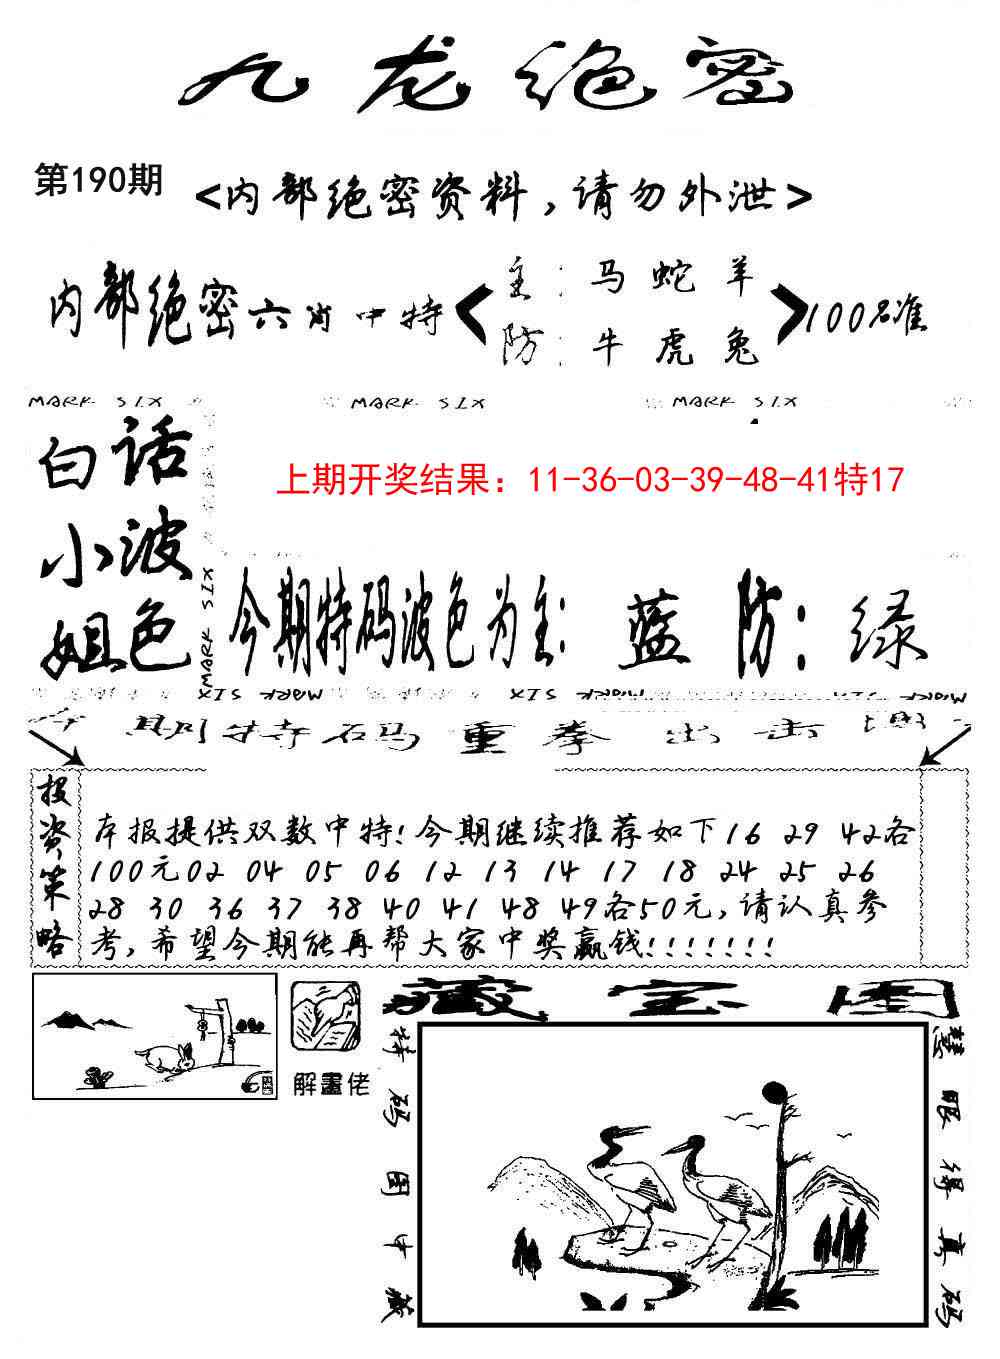 九龙绝密
第190期
<内部绝密资料,请勿外泄>
内部绝密六肖中特
主:马蛇羊
防:牛虎兔
100%准
MARK SIX MARK SIX MARK SIX
白话
小波
姐色
MARK SIX
上期开奖结果：11-36-03-39-48-41特17
今期特码波色为主:蓝 防:绿
MARK SIX MARK SIX MARK SIX MARK
今期特码重拳出击
投资策略
本报提供双数中特!今期继续推荐如下16 29 42各
100元02 04 05 06 12 13 14 17 18 24 25 26
28 30 36 37 38 40 41 48 49各50元,请认真参
考,希望今期能再帮大家中奖赢钱!!!!!!!
解畫佬
藏宝图
特码图中藏
慧眼得真码